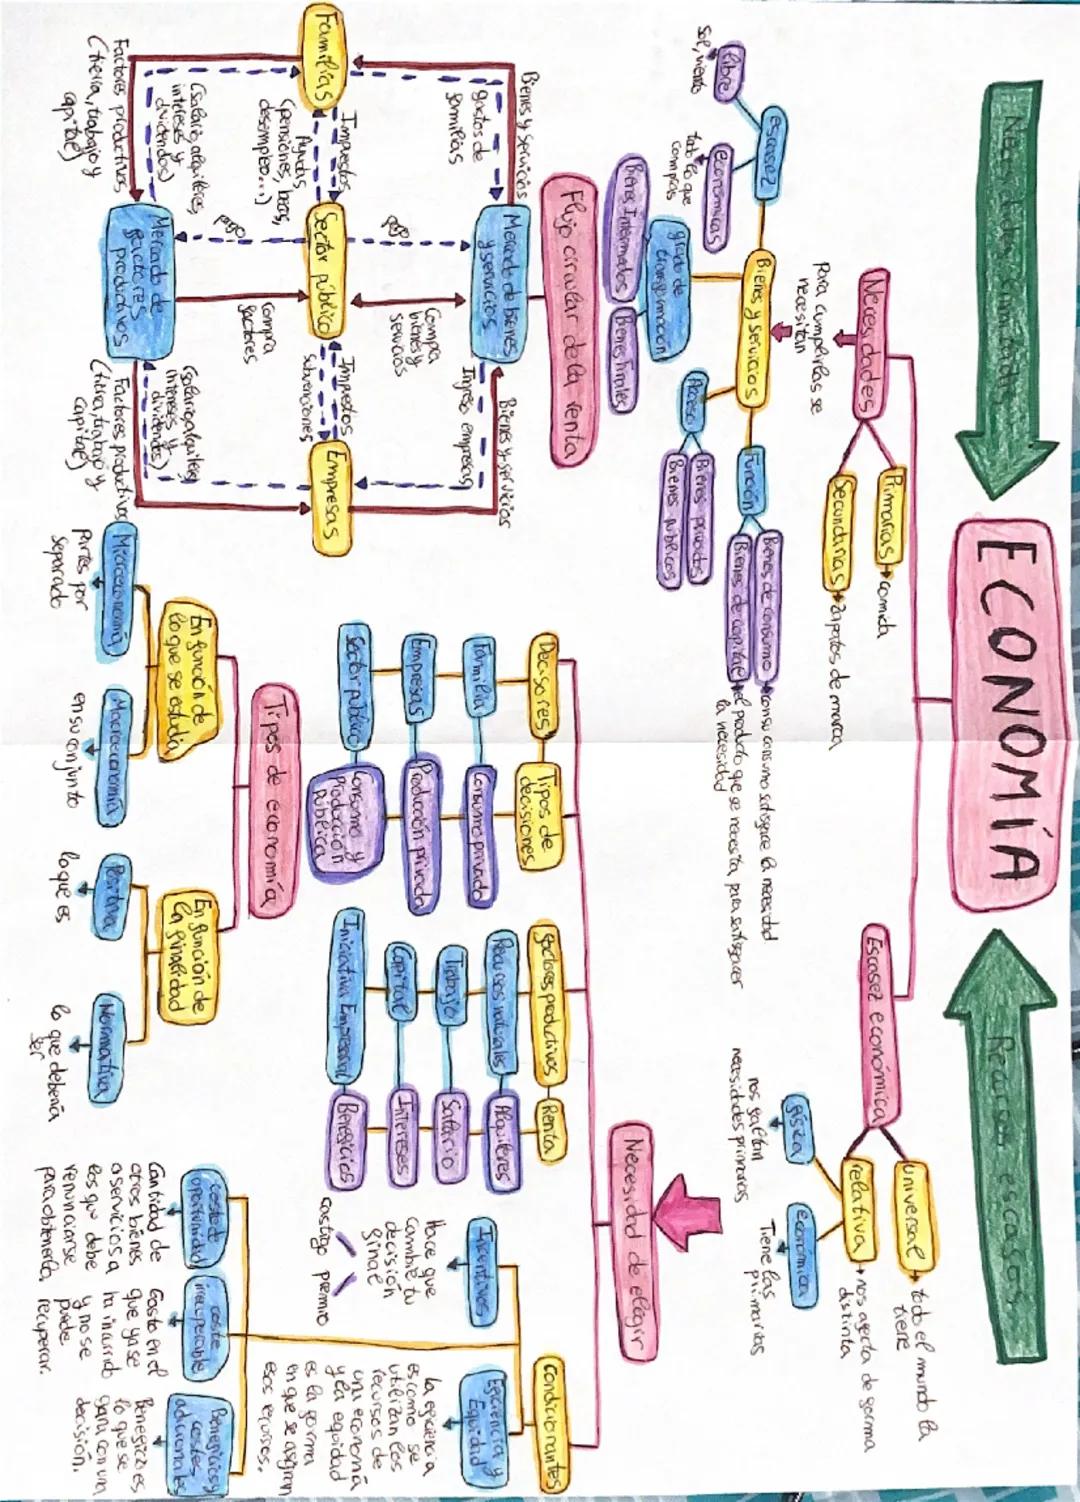 Necesidades ilimitadas
ECONOMÍA
Recursos escasos
Necesidades
Primarias → comida
Secundarias → zapatos de marca
Para cumplirlas se
necesitan
Bienes y servicios
escasez
libre
sol, viento
económicas
todo lo que
compras
grado de
transformación
Bienes Intermedios
Bienes Finales
Acceso
Bienes privados
Bienes públicos
Función
Bienes de consumo → con su consumo satisface la necesidad
Bienes de capital → el producto que se necesita para satisfacer
la necesidad
Escasez económica
universal → todo el mundo la
tiene
relativa → nos afecta de forma
distinta
física
nos faltan
necesidades primarias
económica
Tiene las
primarias
Necesidad de elegir
Decisores
Tipos de
decisiones
Familia
Consumo privado
Empresas
Producción privada
Sector público
Consumo y
producción
pública
factores productivos
Renta
Recursos naturales
Alquileres
Trabajo
Salario
Capital
Intereses
Iniciativa Empresarial
Beneficios
Condicionantes
Incentivos
Hace que
cambie tu
decisión
final
castigo
premio
Eficiencia y
Equidad
La eficiencia
es como se
utilizan los
recursos de
una economía
y la equidad
es la forma
en que se asignan
esos recursos.
coste de
oportunidad
Cantidad de
otros bienes
o servicios a
los que debe
renunciarse
para obtenerla
coste
irrecuperable
Gasto en el
que ya se
ha incurrido
y no se
puede
recuperar.
Beneficios y
costes
adicionales
Beneficio es
lo que se
gana con una
decisión.
Flujo circular de la renta
Mercado de bienes
y servicios
Bienes y servicios
gastos de
familias
Bienes y servicios
Ingreso empresas
Familias
Impuestos
Ayudas
(pensiones, becas,
desempleo...)
Sector público
pago
Compra
bienes y
servicios
Impuestos
subvenciones
Empresas
pago
Compra
factores
(salario, alquileres,
intereses y
dividendos)
Factores productivos
(tierra, trabajo y
capital)
Mercado de
factores
productivos
(salario, alquileres
intereses y
dividendos)
Factores productivos
(tierra, trabajo y
capital)
Tipos de economía
En función de
lo que se estudia
Microeconomía
partes por
separado
Macroeconomía
en su conjunto
En función de
la finalidad
Positiva
lo que es
Normativa
lo que debería
ser